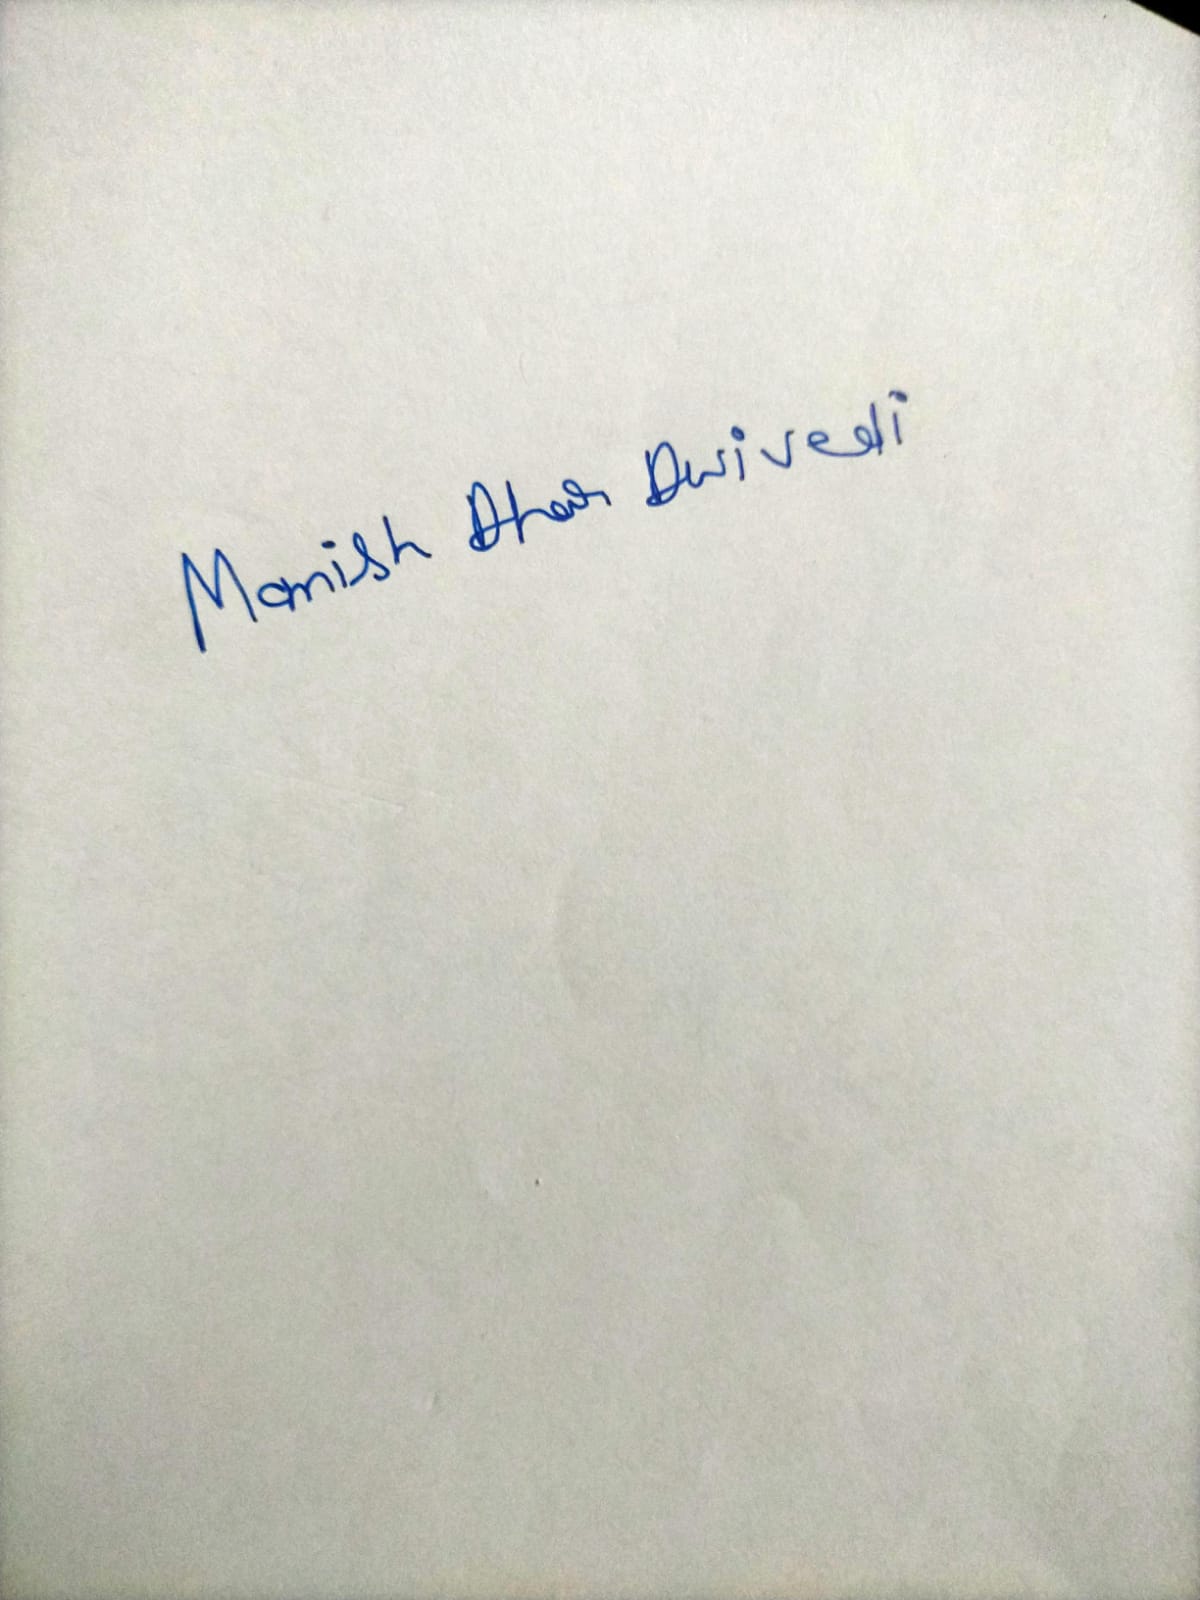 Manish Dhar Dwivedi